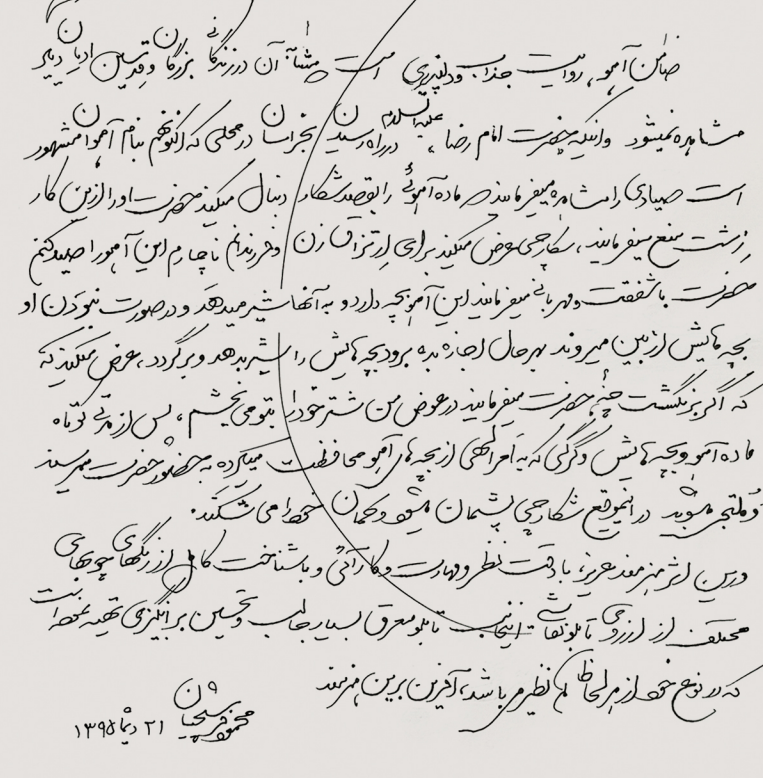 ضامن آهو، روایت جذاب و دلپذیری است مشابه آن در زندگانی بزرگان و قدیسین ادیان دیگر
مشاهده نمیشود و اینکه حضرت امام رضا علیه السلام، در راه رسیدن بخراسان در محلی که اکنون هم بنام آهوان مشهور
است صیادی را مشاهده میفرمایند که ماده آهوئی را بقصد شکار دنبال میکند حضرت او را از این کار
زشت منع میفرمایند، شکارچی عرض میکند برای ارتزاق زن و فرزندانم ناچارم این آهو را صید کنم
حضرت با شفقت و مهربانی میفرمایند این آهو بچه دارد و به آنها شیر میدهد و در صورت نبودن او
بچه هایش از بین میروند بهرحال اجازه بده برود بچه هایش را شیر بدهد و برگردد، عرض میکند که
که اگر برنگشت چه، حضرت میفرمایند در عوض من شتر خود را بتو می بخشم، پس از مدتی کوتاه
ماده آهو و بچه هایش و گرگی که به امر الهی از بچه های آهو محافظت میکرده به حضور حضرت میرسند
و ملتجی میشوند در اینموقع شکارچی پشیمان میشود و کمان خود را می شکند.
و این اثر هنرمند عزیز، با دقت نظر و مهارت و کارآئی و با شناخت کامل از رنگهای چوبهای
مختلف از روی تابلو نقاشی انتخاب تابلو معرق بسیار جالب و تحسین برانگیزی تهیه نموده است
که در نوع خود از هر لحاظ کم نظیر می باشد، آفرین برین هنرمند
محمود فرشچیان
۲۱ دیماه ۱۳۹۵